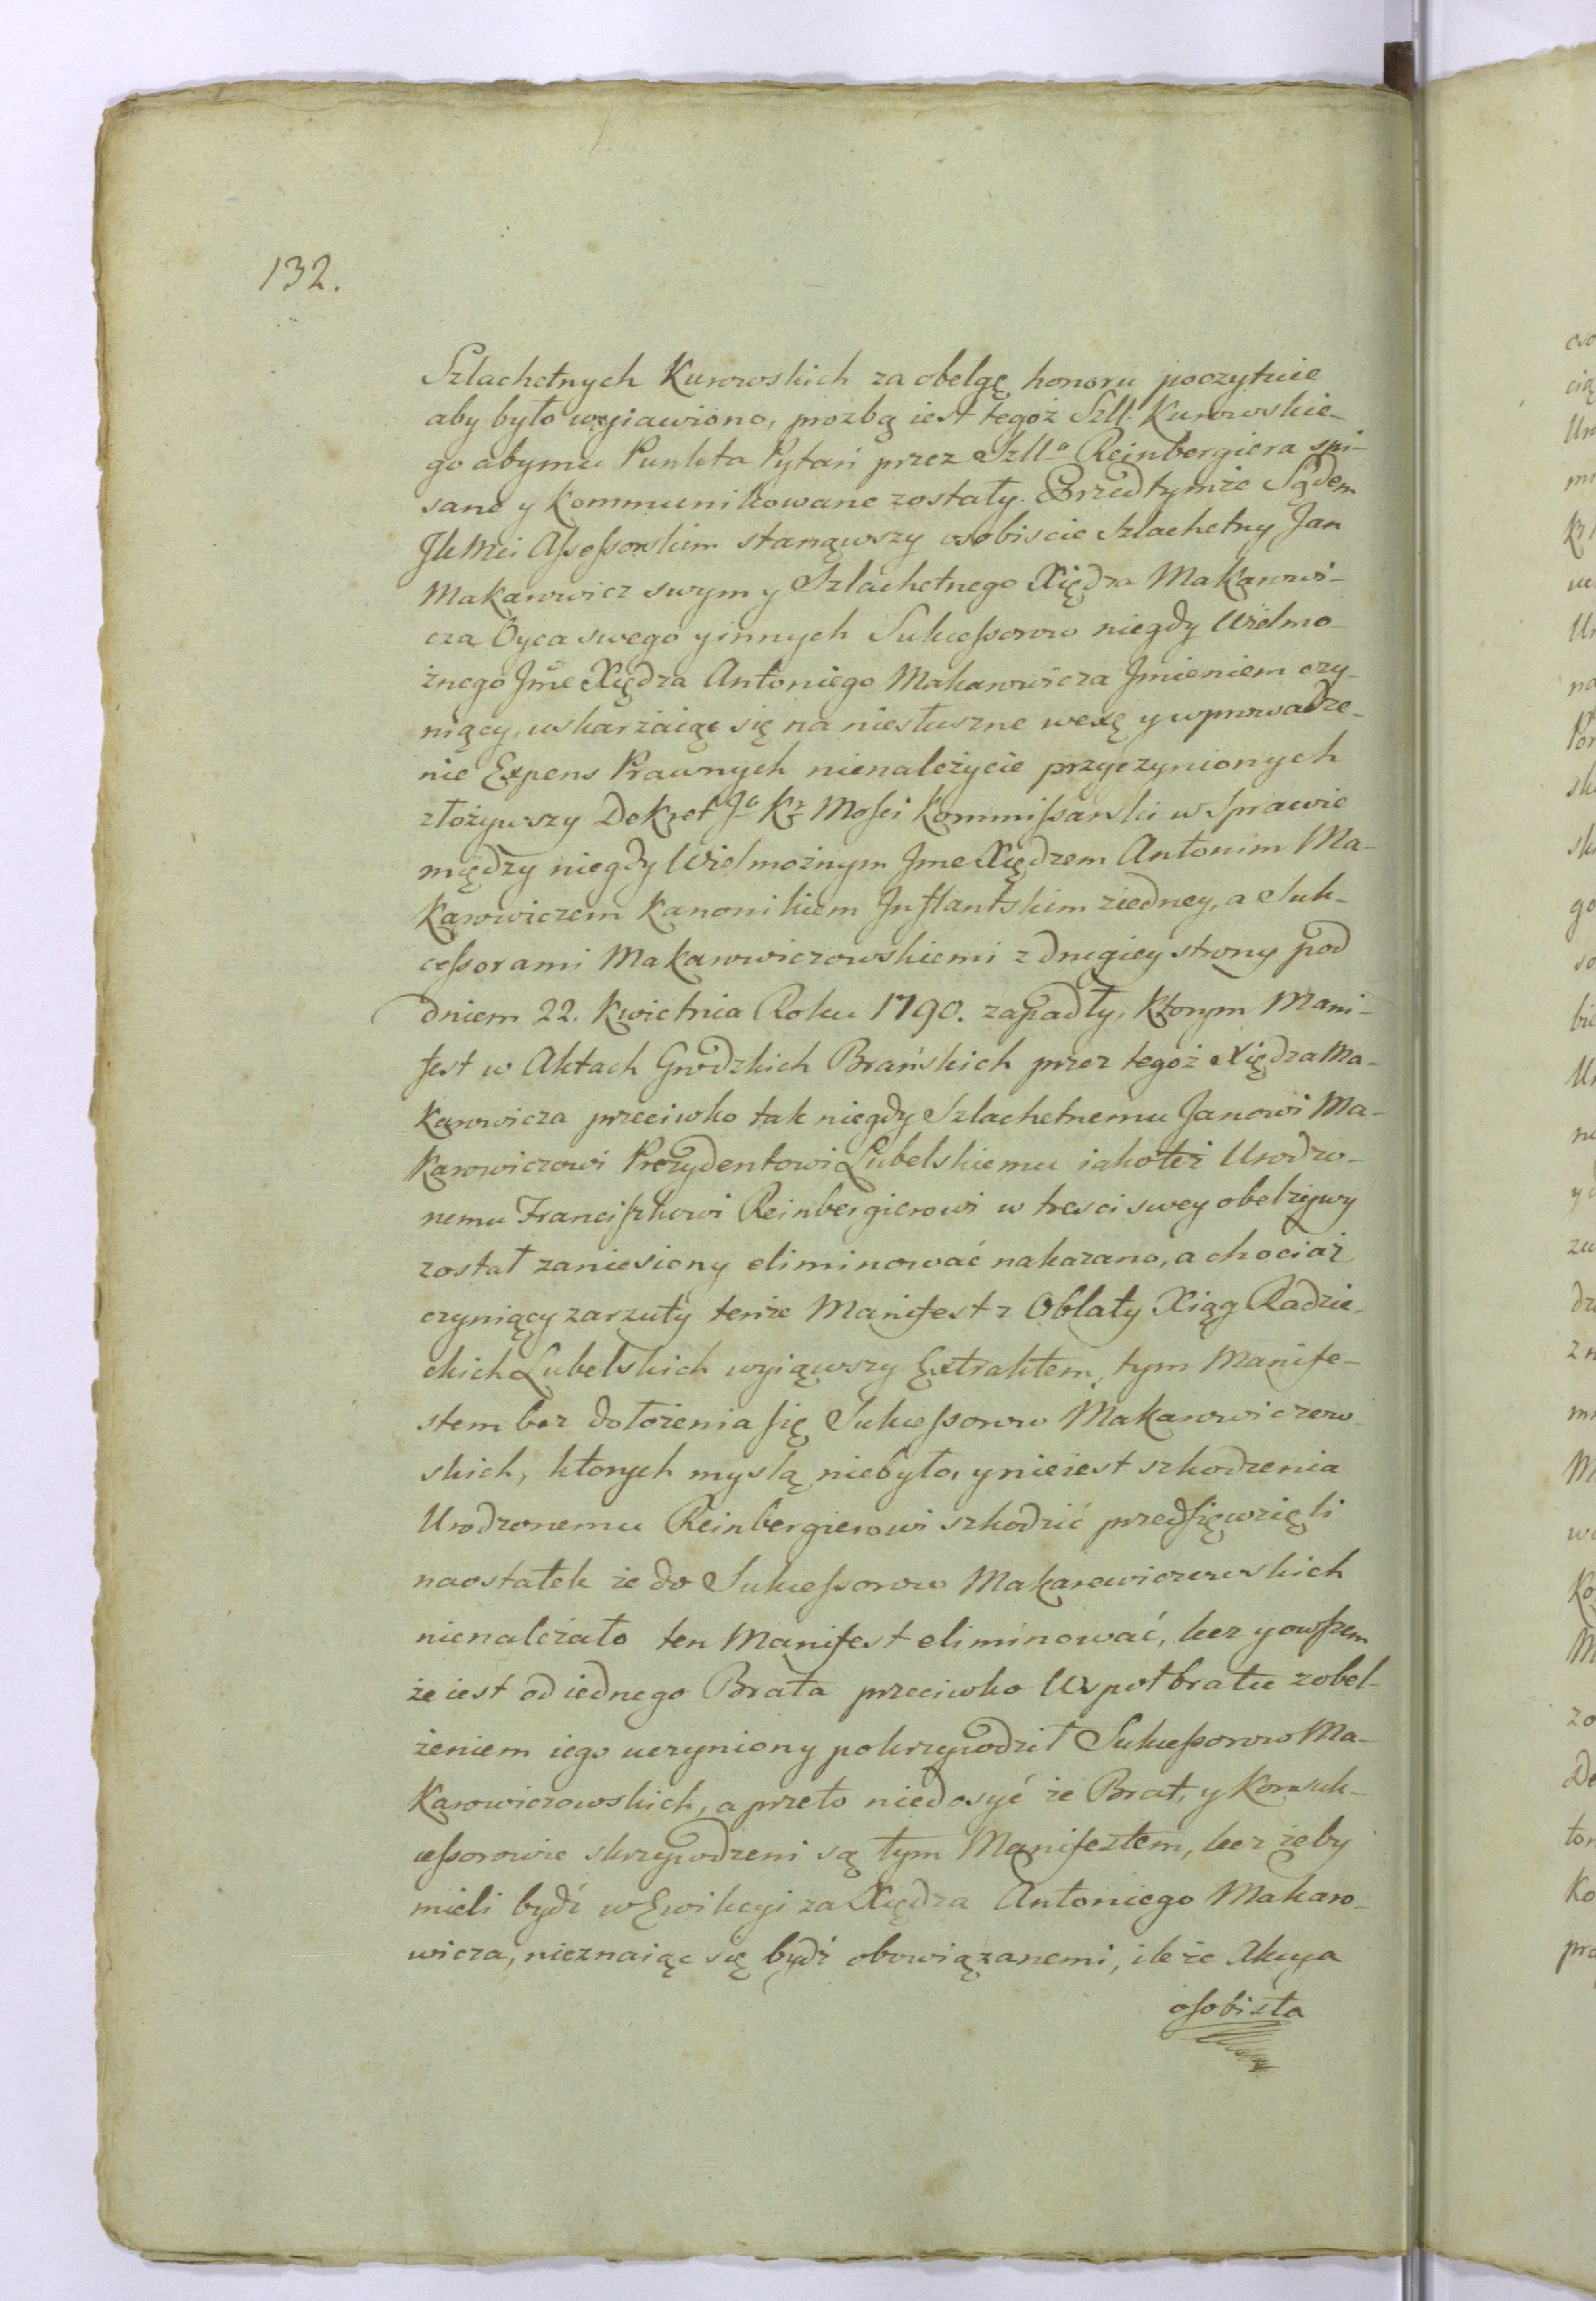 132.
Szlachetnych Kurowskich za obelgę honoru poczytuie
aby było wyiawiono, prozbą iest tegoż Szll. Kurowskie-
go aby mu Punkta Pytań przez Szllo Reinbergiera spi-
sane y kommunikowane zostały. Przed tymże Sądem
JKMci Assessorskim stanąwszy osobiscie Szlachetny Jan
Makarowicz swym y Szlachetnego Xiędza Makarowi-
cza Oyca swego y innych Sukcessorow niegdy Wielmo-
żnego Jmc Xiędza Antoniego Makarowicza Jmieniem czy-
niący, uskarżaiąc się na niesłuszne wexę y wprowadze-
nie Expens Prawnych nienależycie przyczynionych
złożywszy Dekret Jo Kr Mosci Kommissarski w Sprawie
między niegdy Wielmożnym Jmc Xiędzem Antonim Ma-
karowiczem Kanonikiem Inflantskim z iedney, a Suk-
cessorami Makarowiczowskiemi z drugiey strony pod
dniem 22. Kwietnia Roku 1790. zapadły, ktorym Mani-
fest w Aktach Grodzkich Brańskich przez tegoż Xiędza Ma-
karowicza przeciwko tak niegdy Szlachetnemu Janowi Ma-
karowiczowi Prezydentowi Lubelskiemu iako też Urodzo-
nemu Franciszkowi Reinbergierowi w tresci swey obelżywy
został zaniesiony eliminować nakazano, a chociaż
czyniący zarzuty tenże Manifest z Oblaty Xiąg Radzie-
ckich Lubelskich wyiąwszy Extraktem, tym Manife-
stem bez dołożenia się Sukcessorow Makarowiczow-
skich, ktorych myslą niebyło, y nieiest szkodzenia
Urodzonemu Reinbergierowi szkodzić przedsięwzięli
naostatek że do Sukcessorow Makarowiczowskich
nienależało ten Manifest eliminować, lecz y owszem
że iest od iednego Brata przeciwko Wspołbratu z obel-
żeniem iego uczyniony pokrzywdził Sukcessorow Ma-
karowiczowskich, a przeto niedosyć że Brat, y Konsuk-
cessorowie skrzywdzeni są tym Manifestem, lecz żeby
mieli bydź w Ewikcyi za Xiędza Antoniego Makaro-
wicza, nieznaiąc się bydź obowiązanemi, ile że Akcya
osobista